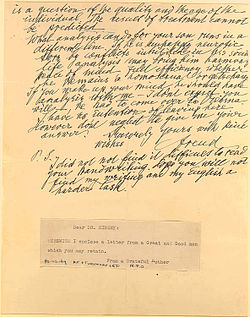 is a question of the quality and the age of the
individual. The result of treatment cannot
be predicted.
What analysis can do for your son runs in a
different line. If he is unhappy, neurotic,
torn by conflicts, inhibited in his social
life, analysis may bring him harmony,
peace of mind, full efficiency whether
he remains a homosexual or gets changed.
If you make up your mind he should have
analysis with me I don't expect you
will he has to come over to Vienna.
I have no intention of leaving here.
However don't neglect to give me your
answer.
Sincerely yours with kind
wishes
Freud
P.S. I did not find it difficult to read
your handwriting. Hope you will not
find my writing and my English a
harder task.
Dear Dr. KINSEY:
HEREWITH I enclose a letter from a Great and Good man
which you may retain.
From a Grateful Mother